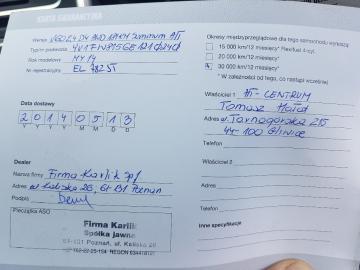 KARTA GWARANCYJNA
Wersja
Typ/nr podwozia
Rok modelowy MY14
Nr rejestracyjny EL 782ST
Data dostawy
2 0 1 4 0 5 1 3
Y Y Y Y M M D D
Dealer
Nazwa firmy Firma Karlik Sp.j.
Adres ul. Kaliska 26, 61-131 Poznań
Podpis
Pieczątka ASO
Firma Karlik
Spółka jawna
61-131 Poznań, ul. Kaliska 26
Okresy międzyprzeglądowe dla tego samochodu wynoszą
15 000 km/12 miesięcy* Flexifuel 4-cyl.
20 000 km/12 miesięcy*
30 000 km/12 miesięcy*
* W zależności od tego, co nastąpi wcześniej
Właściciel 1 CENTRUM
Tomasz
Adres ul. Tarnogórska 215
44-100 Gliwice
Telefon
Właściciel 2
Adres
Telefon
Inne specyfikacje